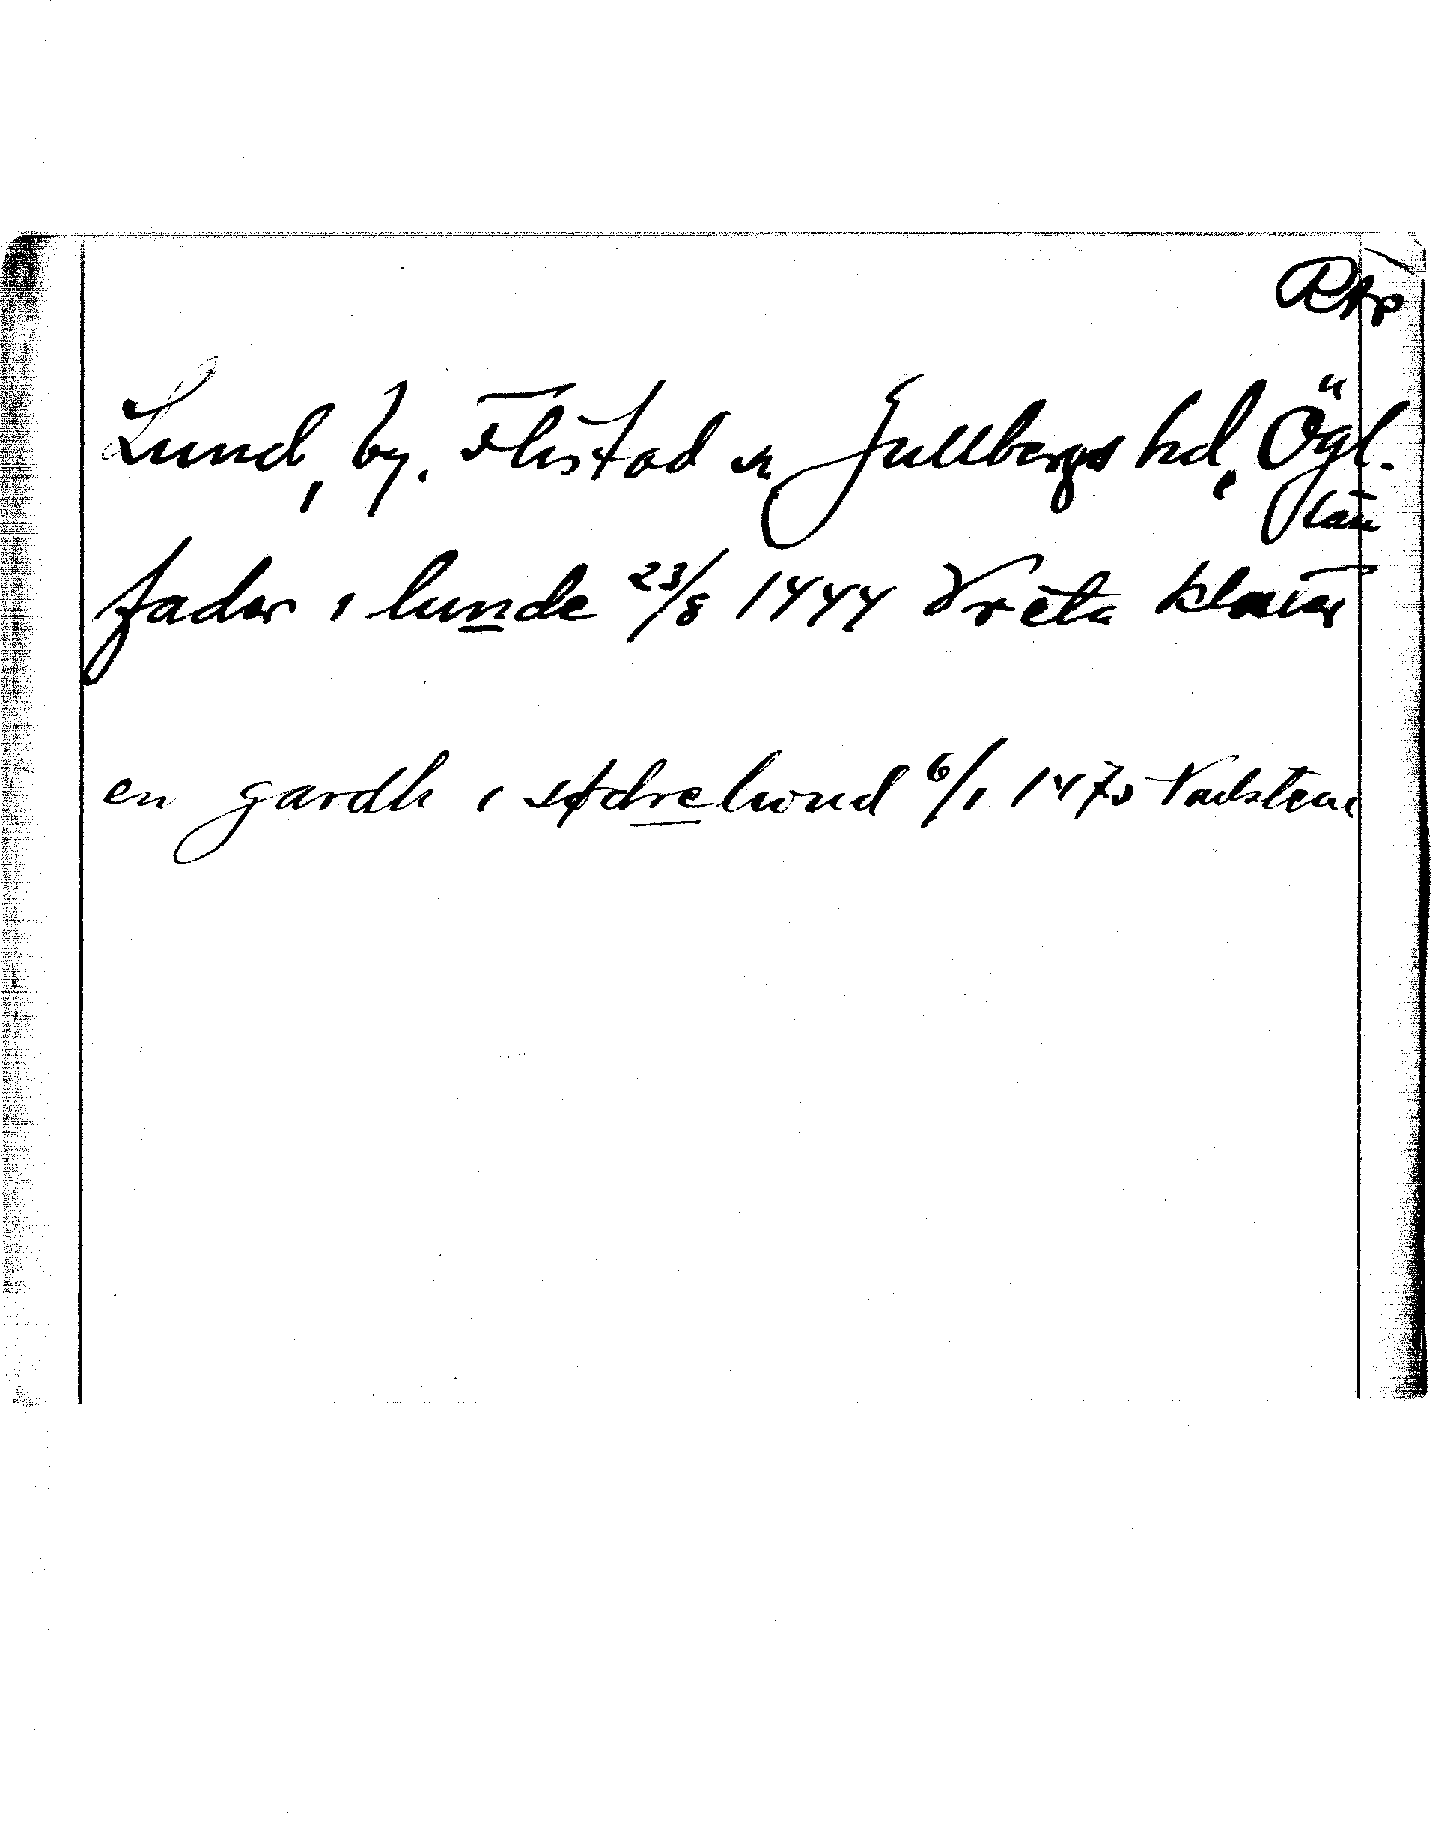 RAp
Lund, by. Flistad sn Gullbergs hd, Ögl.
län
fader i lunde 23/8 1444 Vreta kloster
en gardh i sødrelund 6/1 1470 Vadstena